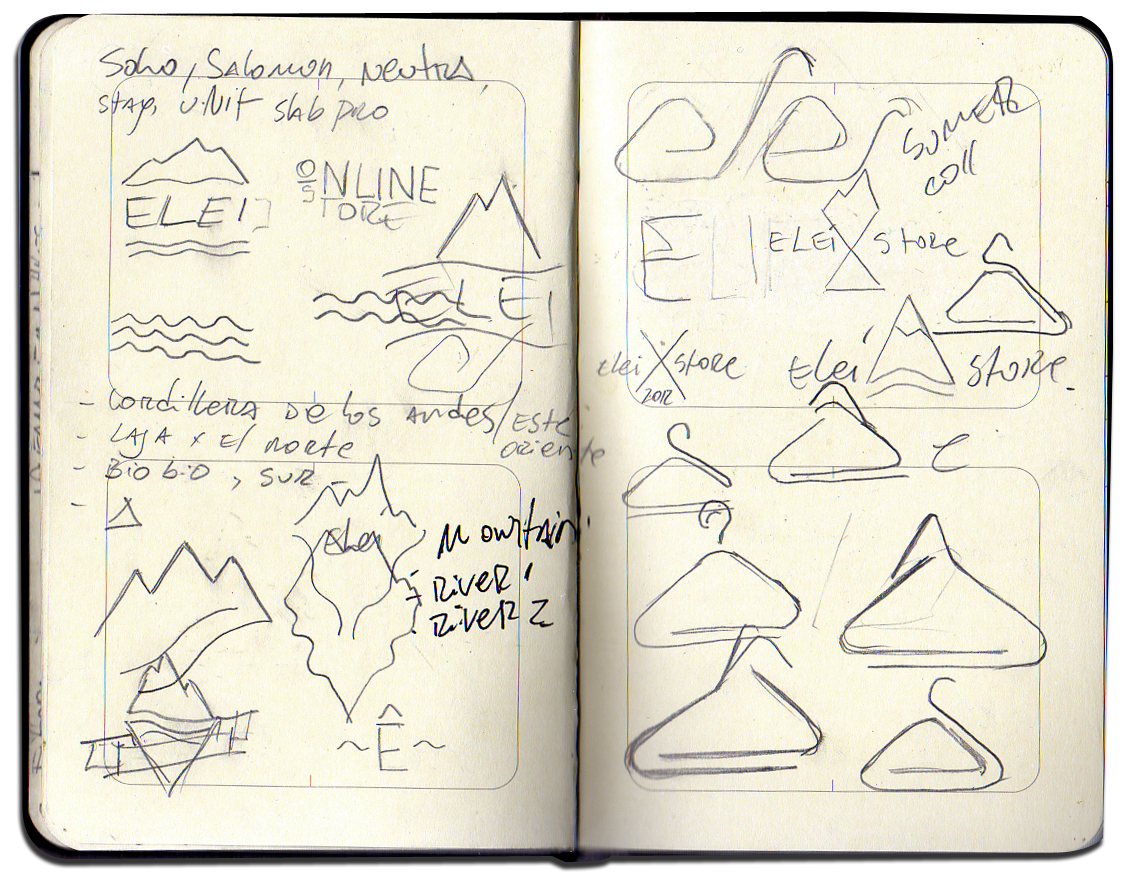 Soho, Salomon, Neutra,
stag, unit slab pro
ELEI
ONLINE
STORE
ELEI
- Cordillera De los Andes / Este
oriente
- LAJA x El norte
- Bio bio, sur
-
Elei
Mountain
- River 1
- River 2
~ Ê ~
coll
ELEI
ELEI X Store
elei X store
2012
Elei store.
e